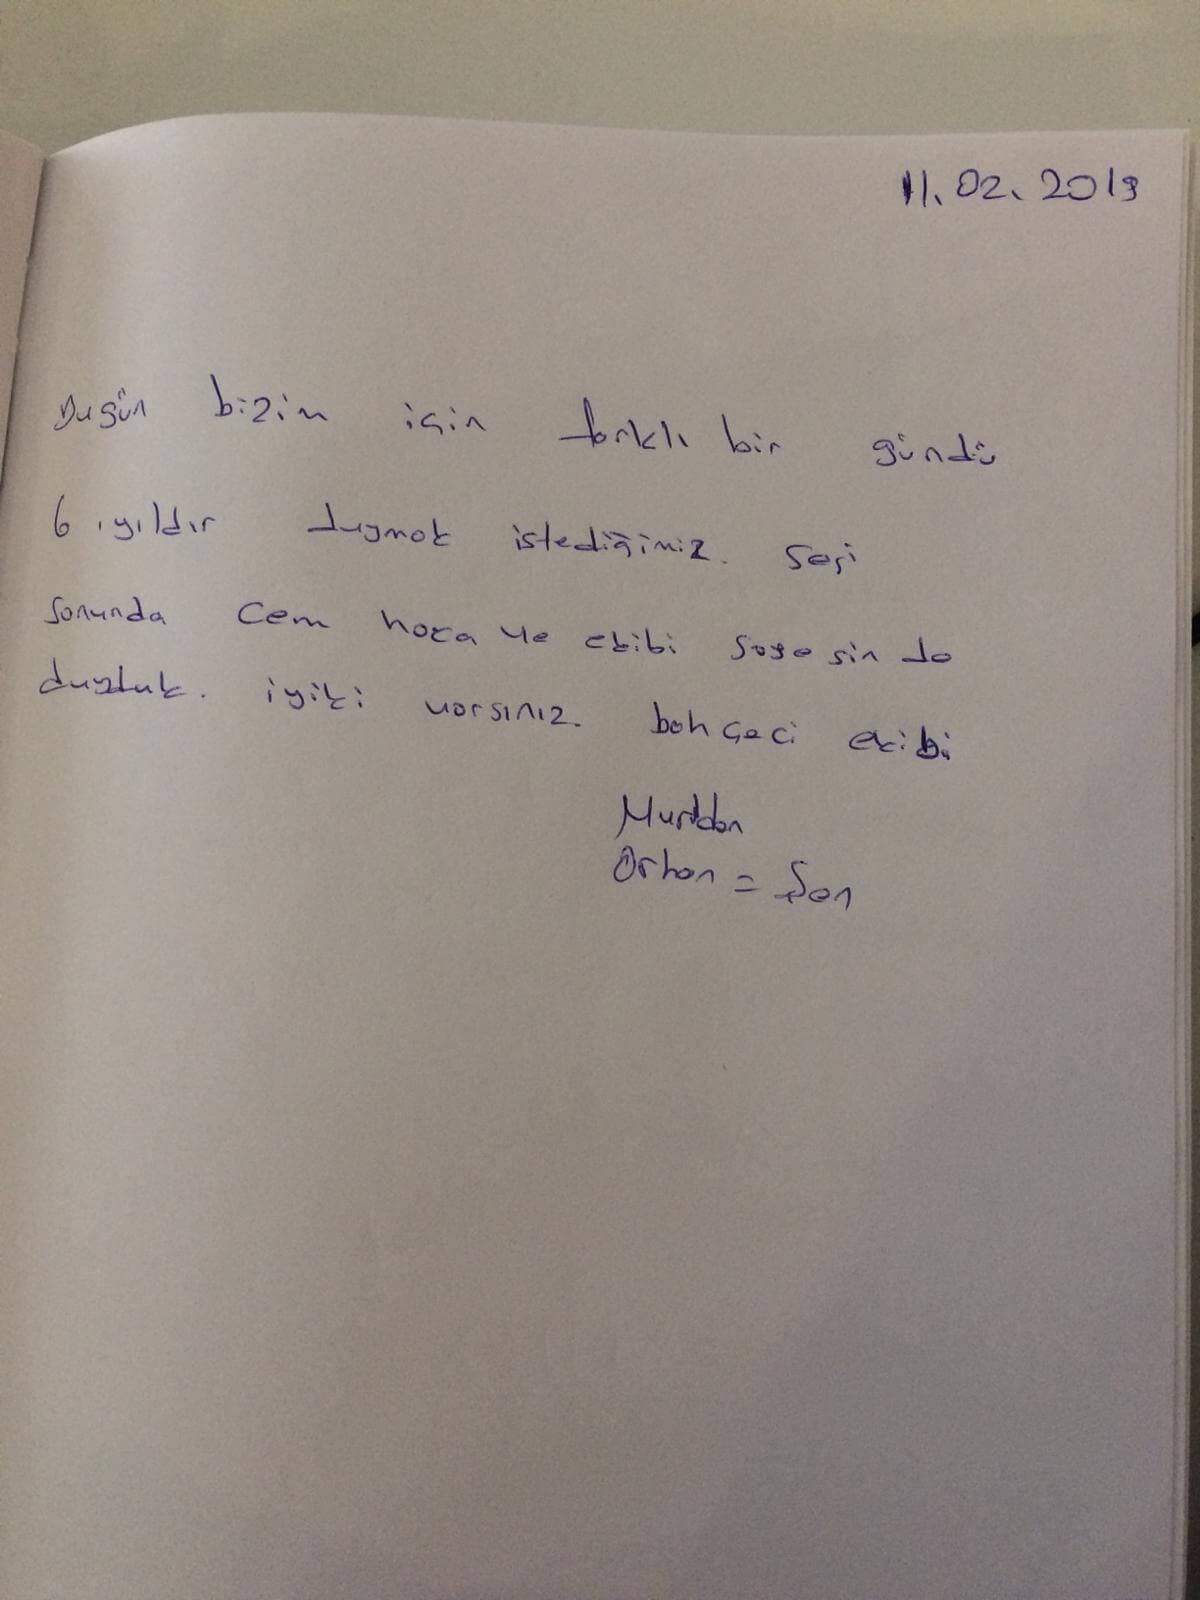 11.02.2019
Bugün bizim için farklı bir gündü
6 yıldır duymak istediğimiz. sesi
sonunda Cem hoca ve ekibi sayesinde
duyduk. iyiki varsınız. bahçeci ekibi
Orhan = Şen